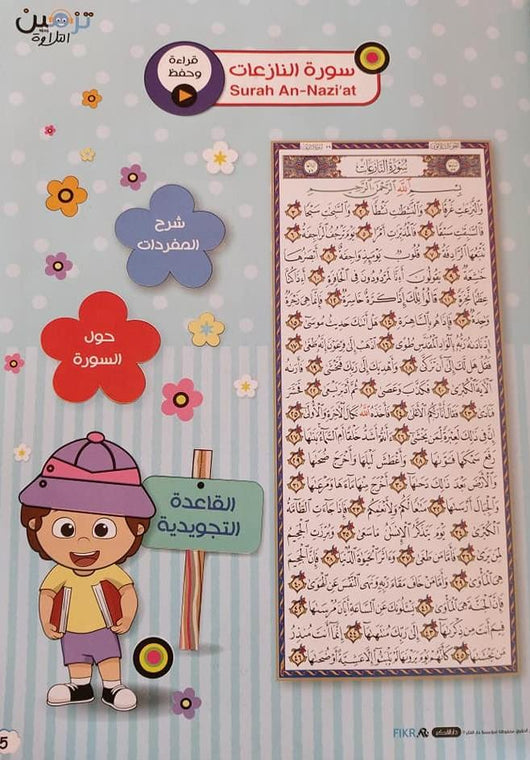 تزيين
التلاوة
قراءة
وحفظ
سورة النازعات
Surah An-Nazi'at
شرح
المفردات
حول
السورة
القاعدة
التجويدية
سُورَةُ النَّازِعَاتِ
بِسْمِ اللَّهِ الرَّحْمَٰنِ الرَّحِيمِ
وَالنَّٰزِعَٰتِ غَرْقًا ١ وَالنَّٰشِطَٰتِ نَشْطًا ٢ وَالسَّٰبِحَٰتِ سَبْحًا ٣
فَالسَّٰبِقَٰتِ سَبْقًا ٤ فَالْمُدَبِّرَٰتِ أَمْرًا ٥ يَوْمَ تَرْجُفُ الرَّاجِفَةُ ٦
تَتْبَعُهَا الرَّادِفَةُ ٧ قُلُوبٌ يَوْمَئِذٍ وَاجِفَةٌ ٨ أَبْصَٰرُهَا
خَٰشِعَةٌ ٩ يَقُولُونَ أَءِنَّا لَمَرْدُودُونَ فِي الْحَافِرَةِ ١٠ أَءِذَا كُنَّا
عِظَٰمًا نَّخِرَةً ١١ قَالُوا تِلْكَ إِذًا كَرَّةٌ خَاسِرَةٌ ١٢ فَإِنَّمَا هِيَ زَجْرَةٌ
وَٰحِدَةٌ ١٣ فَإِذَا هُم بِالسَّاهِرَةِ ١٤ هَلْ أَتَىٰكَ حَدِيثُ مُوسَىٰ ١٥
إِذْ نَادَىٰهُ رَبُّهُ بِالْوَادِ الْمُقَدَّسِ طُوًى ١٦ اذْهَبْ إِلَىٰ فِرْعَوْنَ إِنَّهُ طَغَىٰ ١٧
فَقُلْ هَل لَّكَ إِلَىٰ أَن تَزَكَّىٰ ١٨ وَأَهْدِيَكَ إِلَىٰ رَبِّكَ فَتَخْشَىٰ ١٩ فَأَرَىٰهُ
الْآيَةَ الْكُبْرَىٰ ٢٠ فَكَذَّبَ وَعَصَىٰ ٢١ ثُمَّ أَدْبَرَ يَسْعَىٰ ٢٢ فَحَشَرَ
فَنَادَىٰ ٢٣ فَقَالَ أَنَا رَبُّكُمُ الْأَعْلَىٰ ٢٤ فَأَخَذَهُ اللَّهُ نَكَالَ الْآخِرَةِ وَالْأُولَىٰ ٢٥
إِنَّ فِي ذَٰلِكَ لَعِبْرَةً لِّمَن يَخْشَىٰ ٢٦ ءَأَنتُمْ أَشَدُّ خَلْقًا أَمِ السَّمَاءُ بَنَىٰهَا ٢٧
رَفَعَ سَمْكَهَا فَسَوَّىٰهَا ٢٨ وَأَغْطَشَ لَيْلَهَا وَأَخْرَجَ ضُحَىٰهَا ٢٩
وَالْأَرْضَ بَعْدَ ذَٰلِكَ دَحَىٰهَا ٣٠ أَخْرَجَ مِنْهَا مَاءَهَا وَمَرْعَىٰهَا ٣١
وَالْجِبَالَ أَرْسَىٰهَا ٣٢ مَتَٰعًا لَّكُمْ وَلِأَنْعَٰمِكُمْ ٣٣ فَإِذَا جَاءَتِ الطَّامَّةُ
الْكُبْرَىٰ ٣٤ يَوْمَ يَتَذَكَّرُ الْإِنسَٰنُ مَا سَعَىٰ ٣٥ وَبُرِّزَتِ الْجَحِيمُ
لِمَن يَرَىٰ ٣٦ فَأَمَّا مَن طَغَىٰ ٣٧ وَءَاثَرَ الْحَيَوٰةَ الدُّنْيَا ٣٨ فَإِنَّ الْجَحِيمَ
هِيَ الْمَأْوَىٰ ٣٩ وَأَمَّا مَنْ خَافَ مَقَامَ رَبِّهِ وَنَهَى النَّفْسَ عَنِ الْهَوَىٰ ٤٠
فَإِنَّ الْجَنَّةَ هِيَ الْمَأْوَىٰ ٤١ يَسْـَٔلُونَكَ عَنِ السَّاعَةِ أَيَّانَ مُرْسَىٰهَا ٤٢
فِيمَ أَنتَ مِن ذِكْرَىٰهَا ٤٣ إِلَىٰ رَبِّكَ مُنتَهَىٰهَا ٤٤ إِنَّمَا أَنتَ مُنذِرُ
مَن يَخْشَىٰهَا ٤٥ كَأَنَّهُمْ يَوْمَ يَرَوْنَهَا لَمْ يَلْبَثُوا إِلَّا عَشِيَّةً أَوْ ضُحَىٰهَا ٤٦
FIKR
دار الفكر
5